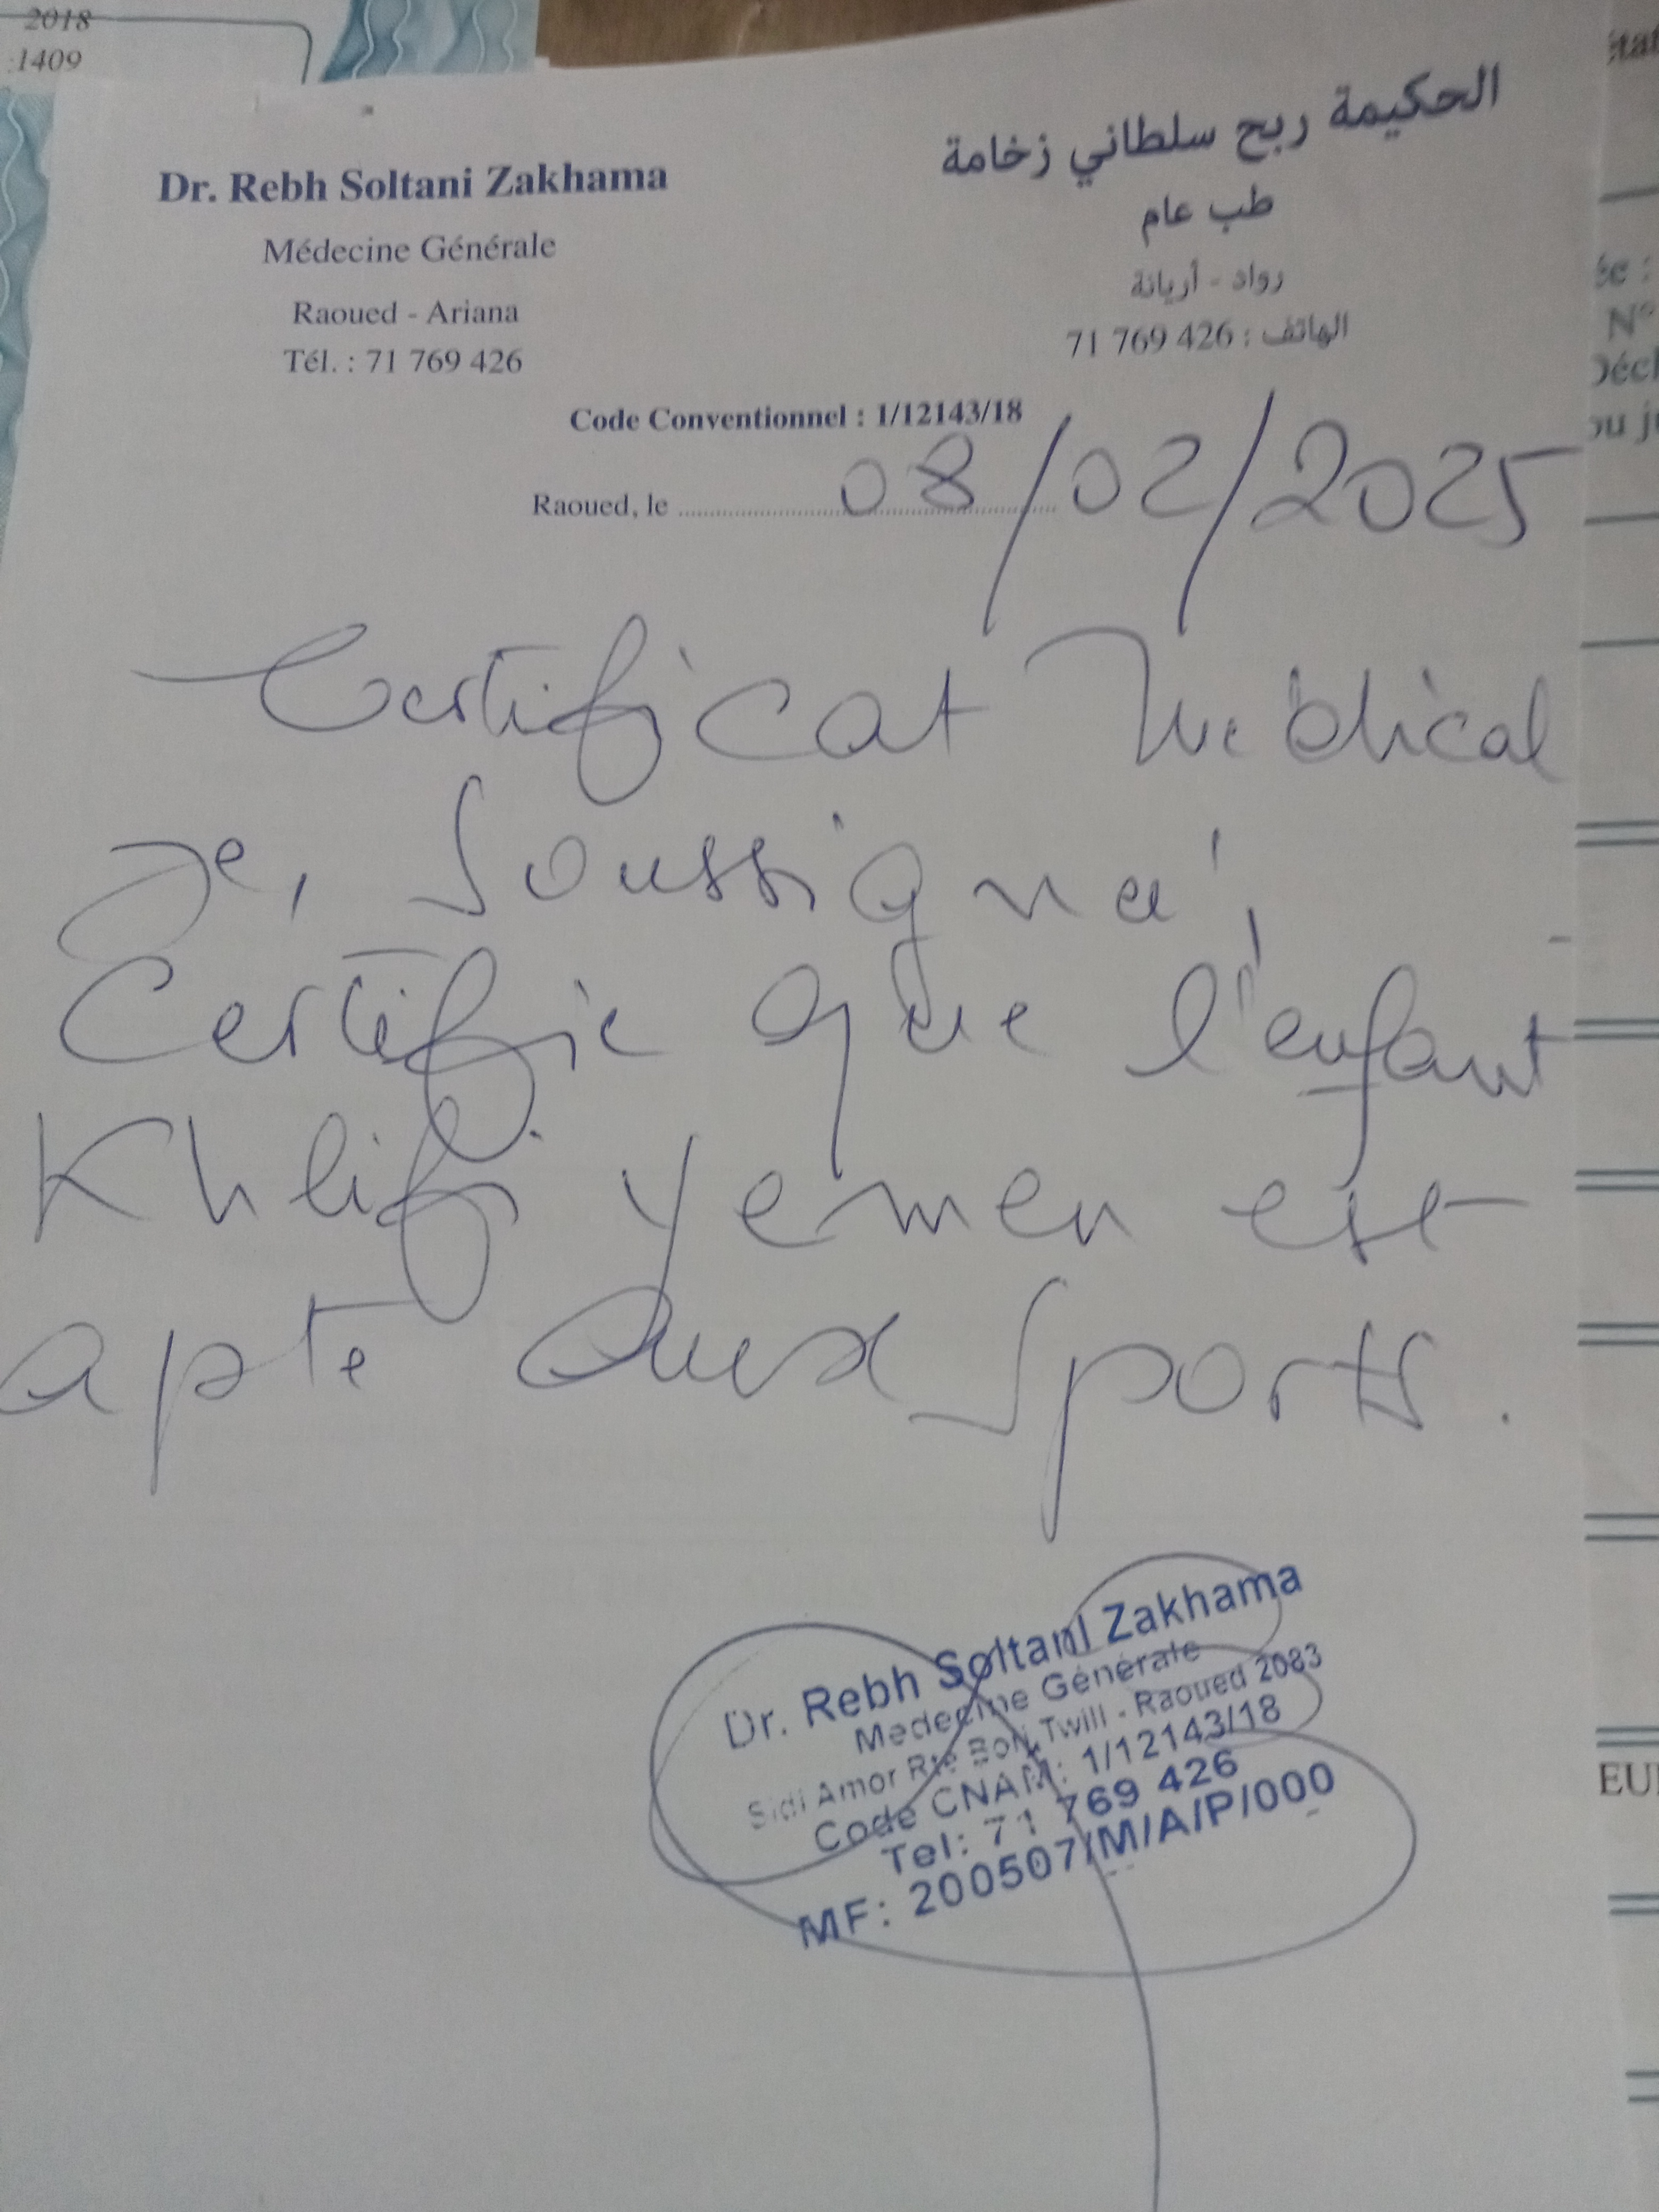 2018
:1409
Dr. Rebh Soltani Zakhama
Médecine Générale
Raoued - Ariana
Tél. : 71 769 426
الحكيمة ربح سلطاني زخامة
طب عام
رواد - أريانة
الهاتف : 426 769 71
Code Conventionnel : 1/12143/18
Raoued, le 08/02/2025
Certificat Médical
Je, Soussigné,
Certifie que l'enfant
Khlifi yemen est
apte aux Sports.
Dr. Rebh Soltani Zakhama
Médecine Générale
Sidi Amor Rte Twill - Raoued 2083
Code CNAM: 1/12143/18
Tel: 71 769 426
MF: 200507/M/A/P/000
N°